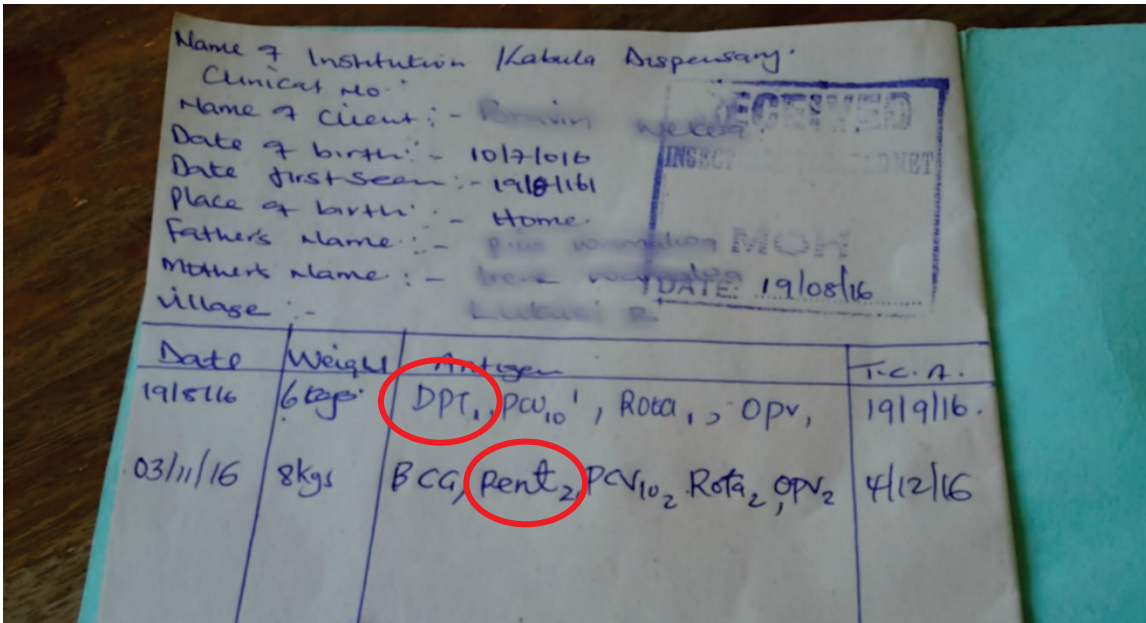 Name of Institution Kabula Dispensary.
Clinical No.
Name of Client :-
Date of birth :- 10/7/016
Date first seen :- 19/8/161
Place of birth :- Home.
Father's Name :-
Mother's Name :-
Village :-
RECEIVED
MOH
DATE: 19/08/16
Date Weight Antigen T.C.A.
19/8/16 6kgs. DPT1, PCV10 1, Rota 1, OPV1 19/9/16.
03/11/16 8kgs BCG, Pent 2, PCV10 2 Rota 2, OPV2 4/12/16